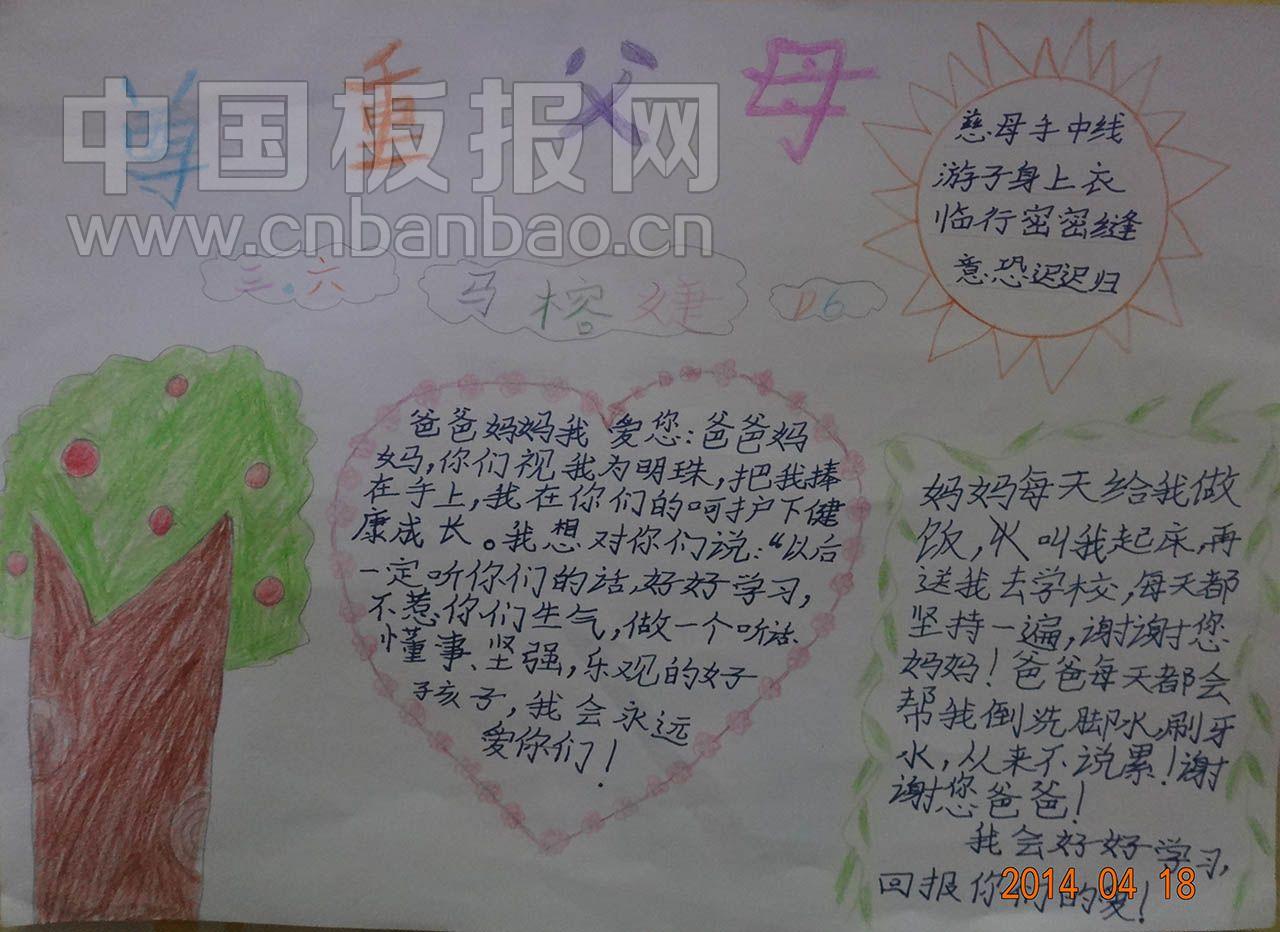 尊重父母
中国板报网
www.cnbanbao.cn
三.六
马榕婕
26
慈母手中线
游子身上衣
临行密密缝
意恐迟迟归
爸爸妈妈我爱您:爸爸妈
妈,你们视我为明珠,把我捧
在手上,我在你们的呵护下健
康成长。我想对你们说:“以后
一定听你们的话,好好学习,
不惹你们生气,做一个听话、
懂事、坚强,乐观的好
孩子,我会永远
爱你们!
妈妈每天给我做
饭,叫我起床,再
送我去学校,每天都
坚持一遍,谢谢您
妈妈!爸爸每天都会
帮我倒洗脚水,刷牙
水,从来不说累!谢
谢您爸爸!
我会好好学习,
回报你们的爱!
2014 04 18